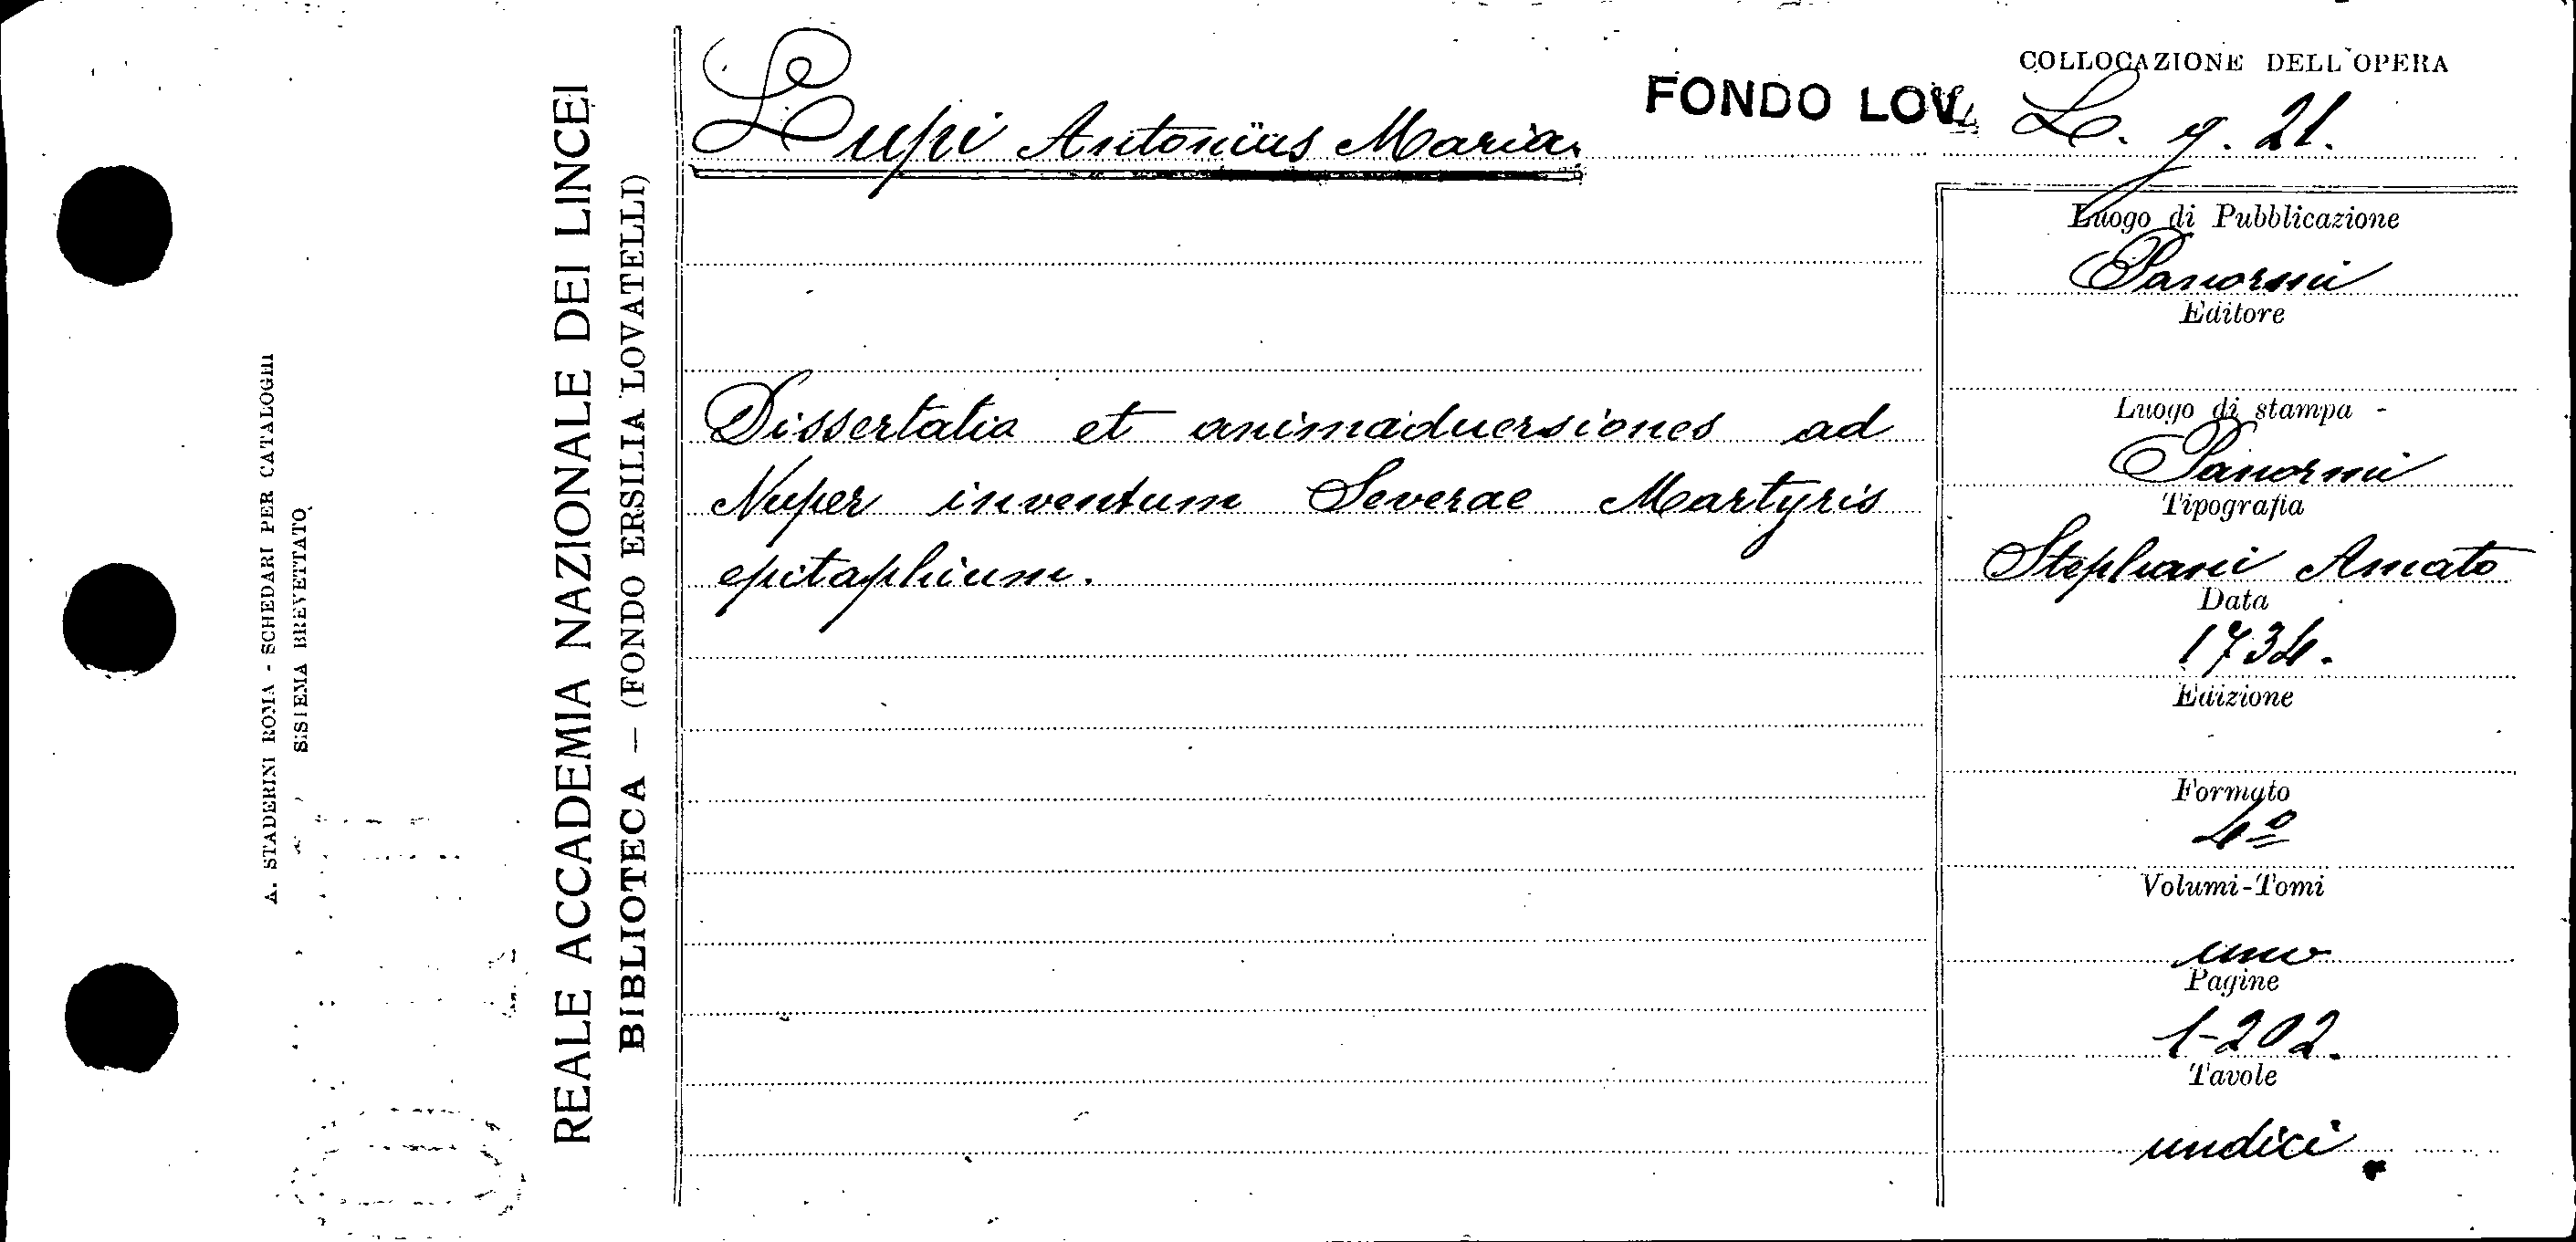 A. STADERINI ROMA - SCHEDARI PER CATALOGHI
SISTEMA BREVETTATO
REALE ACCADEMIA NAZIONALE DEI LINCEI
BIBLIOTECA — (FONDO ERSILIA LOVATELLI)
Lupi Antonius Maria.
FONDO LOV.
COLLOCAZIONE DELL'OPERA
L. g. 21.
Dissertatio et animaduersiones ad
Nuper inventum Severae Martyris
epitaphium.
Luogo di Pubblicazione
Panormi
Editore
Luogo di stampa
Panormi
Tipografia
Stephani Amato
Data
1734.
Edizione
Formato
4º
Volumi-Tomi
uno
Pagine
1-202.
Tavole
undici